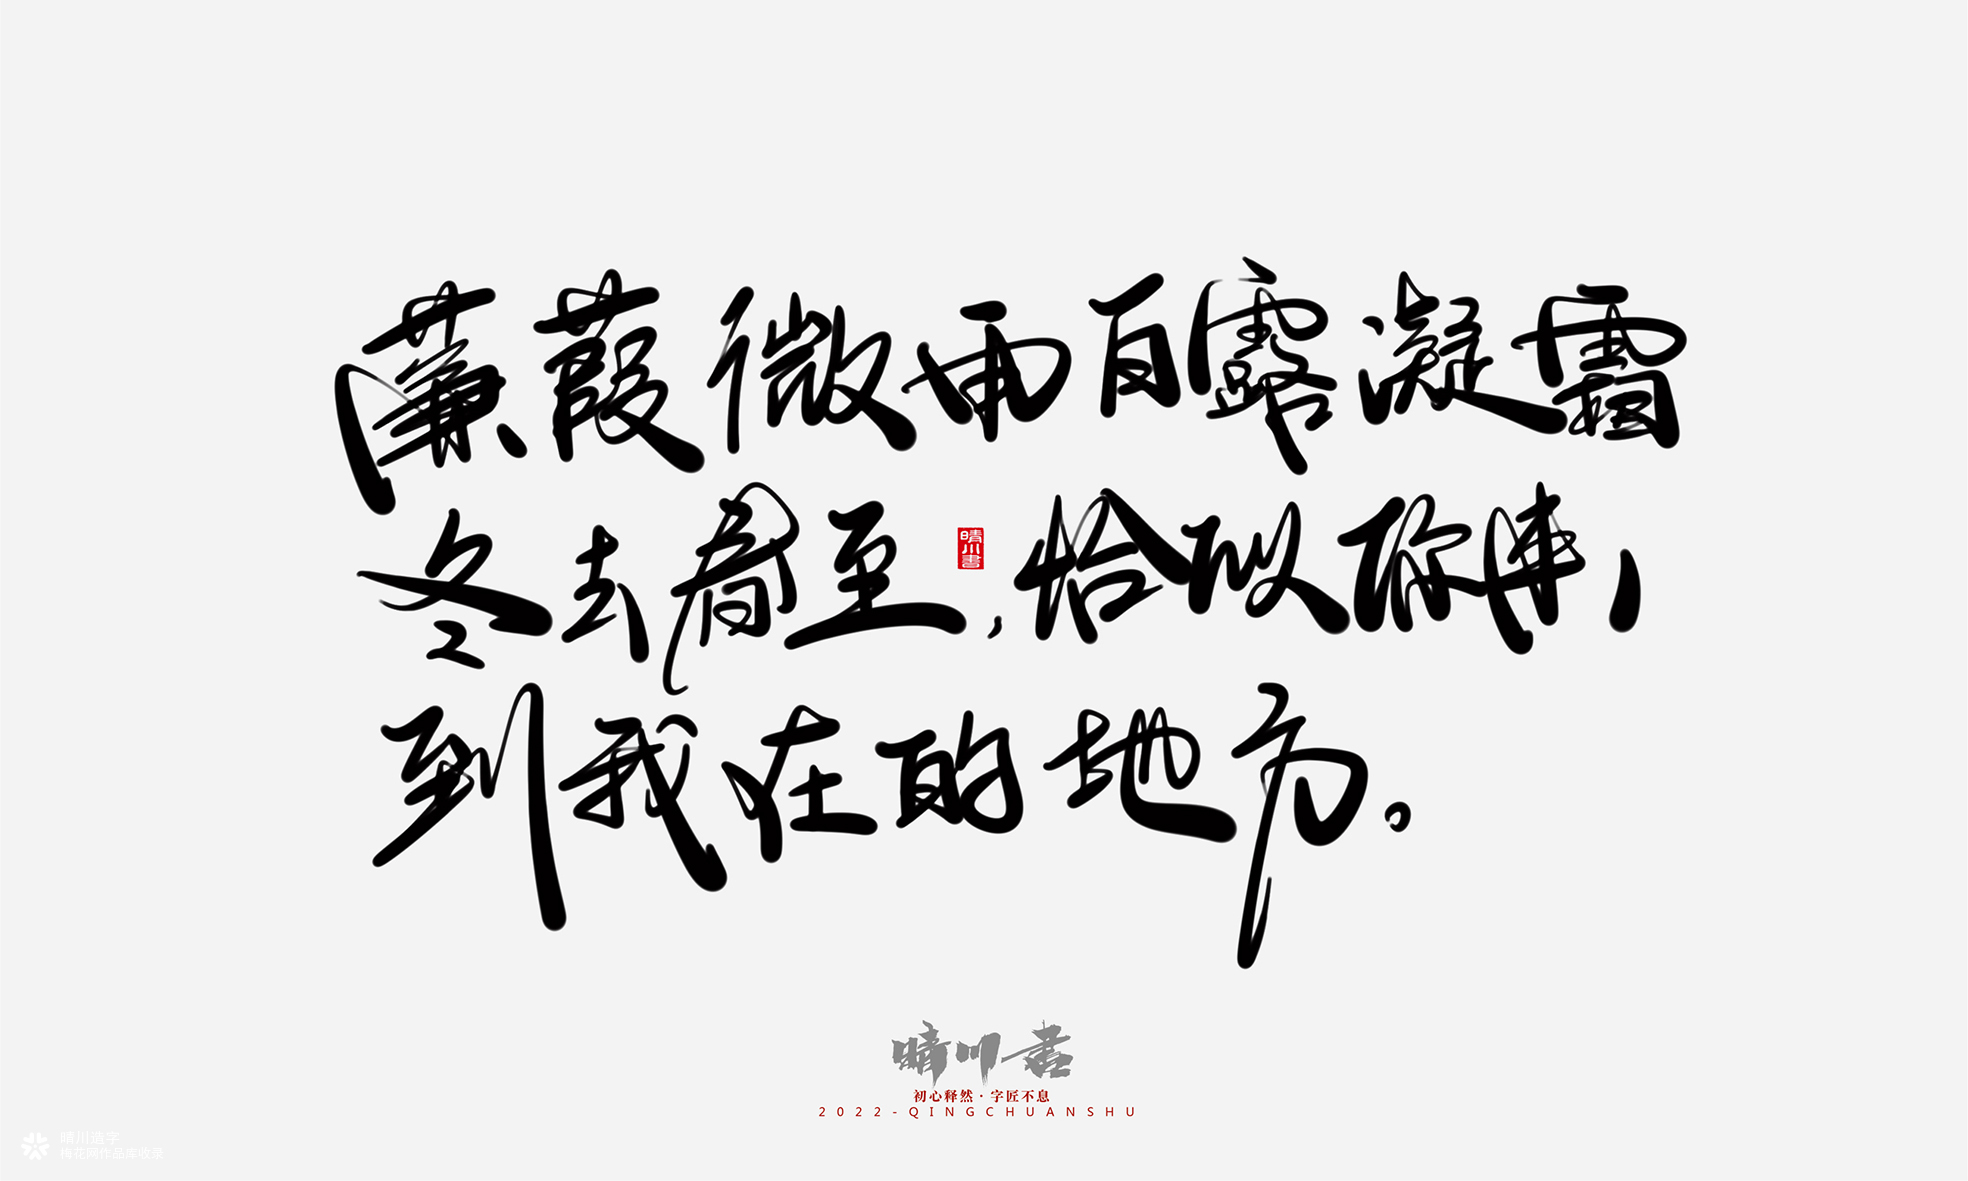 蒹葭微雨白露凝霜
冬去春至,恰似你来,
到我在的地方。
晴川書
晴川書
初心释然·字匠不息
2022-QINGCHUANSHU
晴川造字
梅花网作品库收录